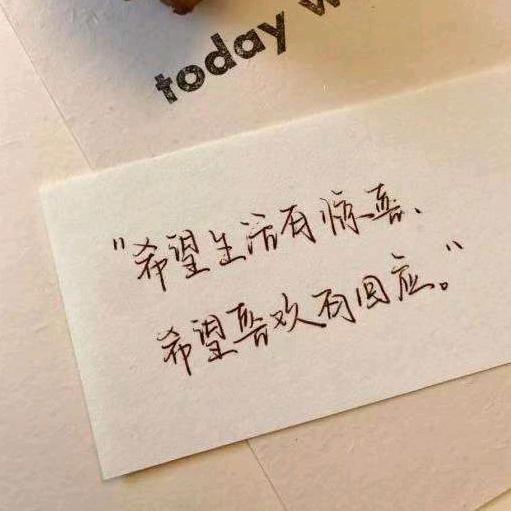 today w
"希望生活有惊喜、
希望喜欢有回应。"